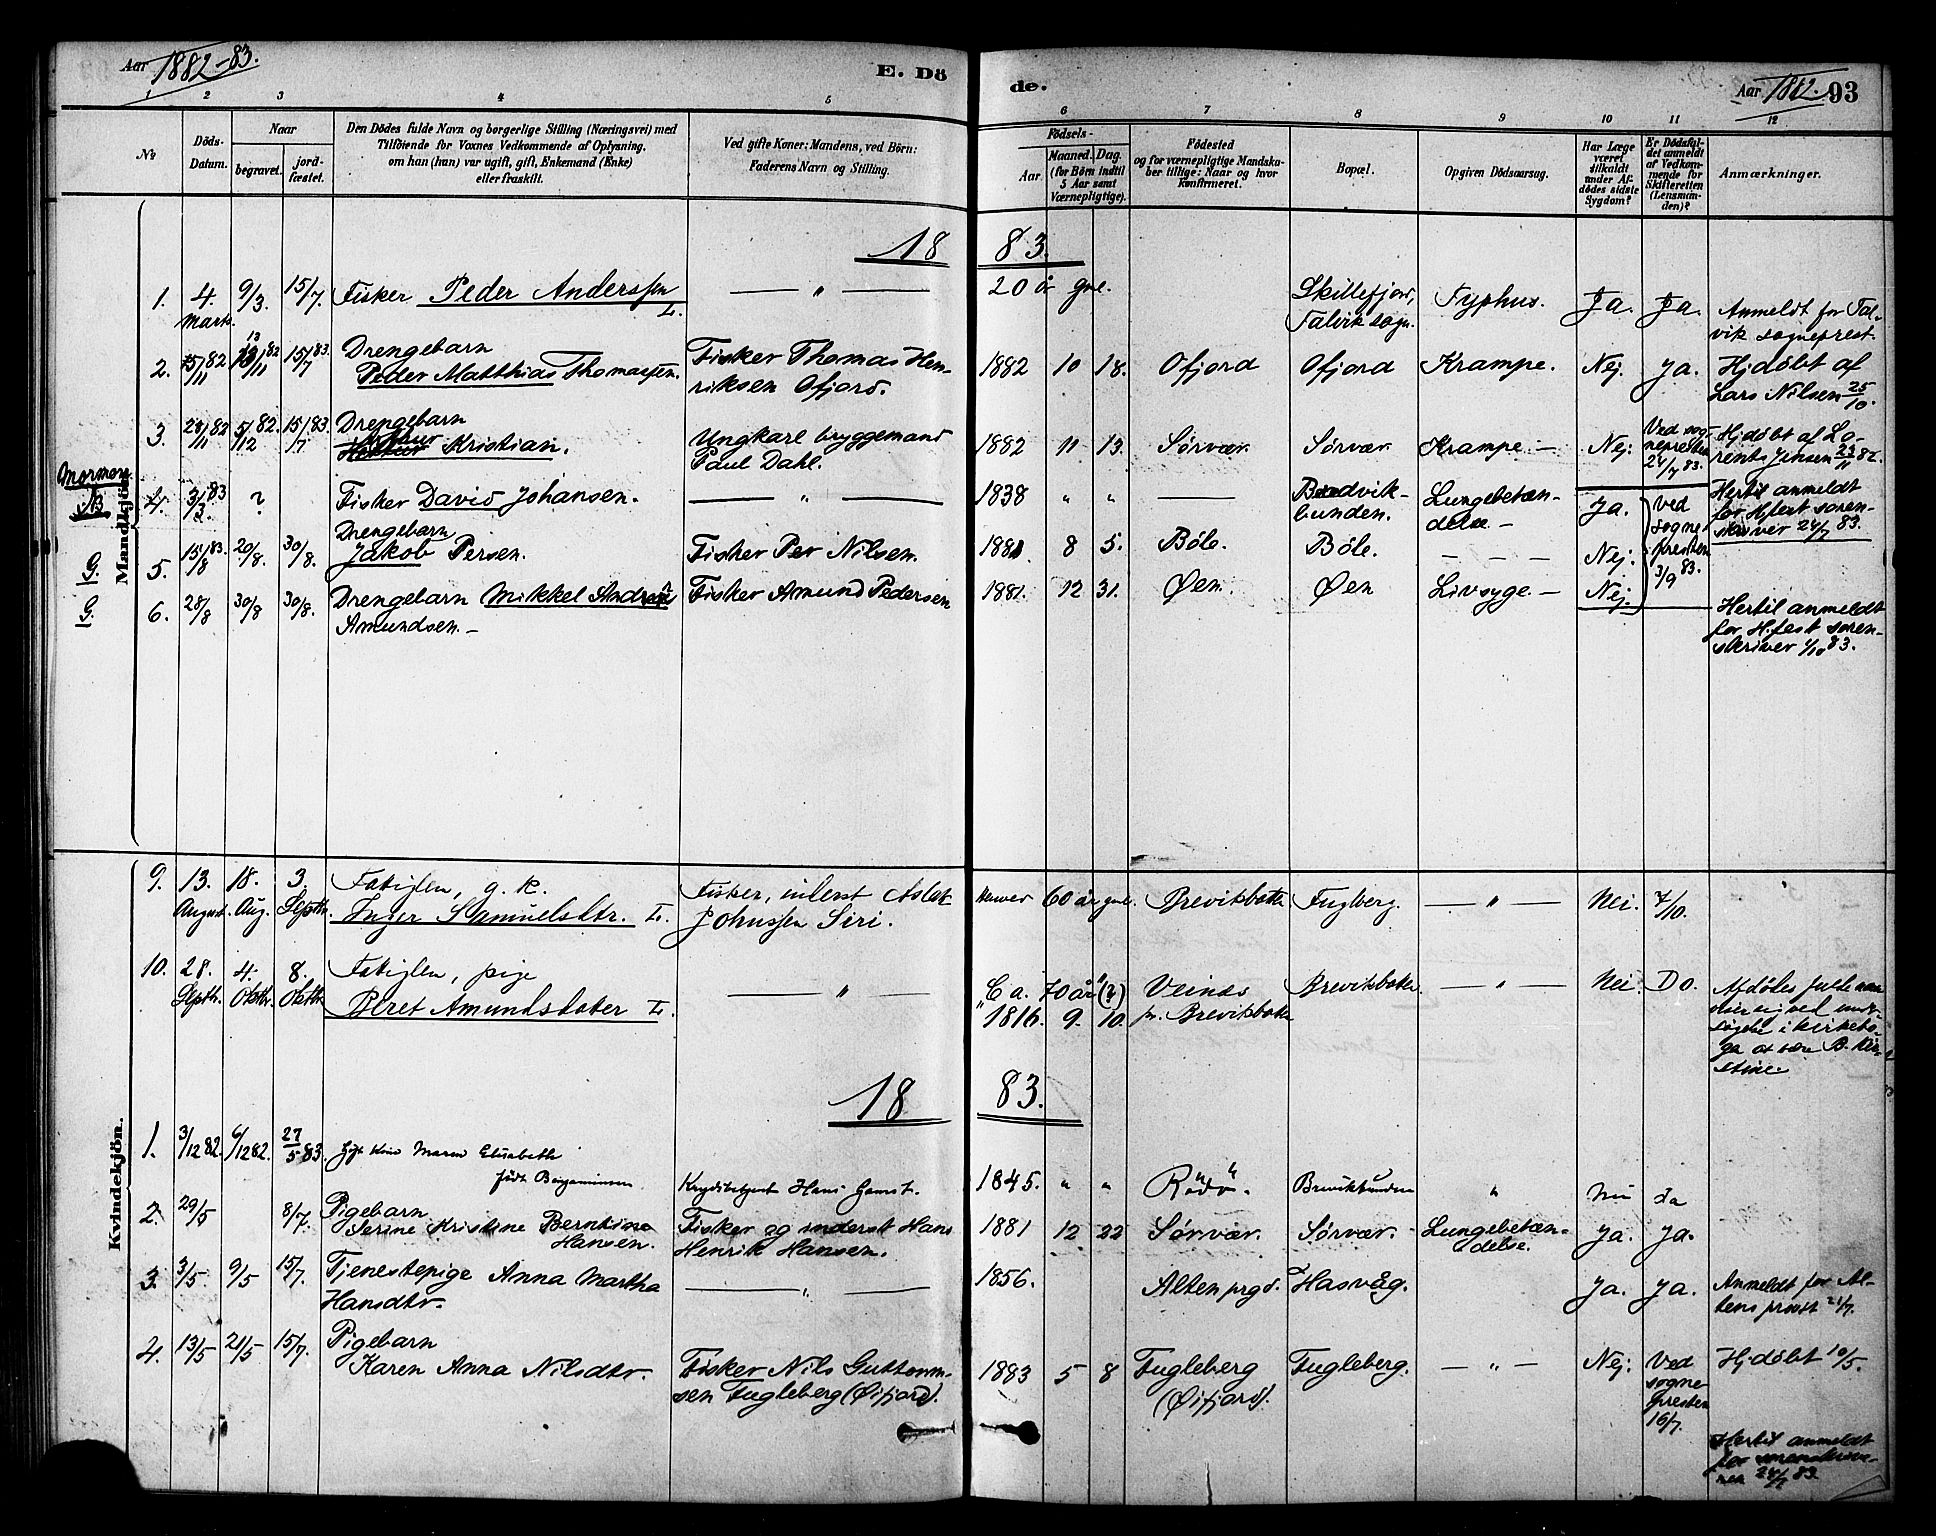 Aar 1882-83.
E. Dö
de.
Aar 1882. 93
1 2 3 4 5 6 7 8 9 10 11 12
No
Döds-
Datum.
Naar
begravet.
jord-
fæstet.
Den Dödes fulde Navn og borgerlige Stilling (Næringsvei) med
Tilföiende for Voxnes Vedkommende af Oplysning,
om han (hun) var ugift, gift, Enkemand (Enke)
eller fraskilt.
Ved gifte Koner: Mandens, ved Börn:
Faderens Navn og Stilling.
Födsels-
Aar.
Maaned. Dag.
(for Börn indtil
5 Aar samt
Værnepligtige).
Födested
og for værnepligtige Mandska-
ber tillige: Naar og hvor
konfirmeret.
Bopæl.
Opgiven Dödsaarsag.
Har Læge
været
tilkaldt
under Af-
dödes sidste
Sygdom?
Er Dödsfal-
det anmeldt
af Vedkom-
mende for
Skifteretten
(Lensman-
den)?
Anmærkninger.
Mandkjön.
18 83.
1. 4. Marts. 9/3 15/7. Fisker Peder Anderssen L. — " — 20 år gml. Skillefjord, Talvik sogn. Typhus. Ja. Ja. Anmeldt for Tal-
vik sogneprest.
2. 5/11 82 13/11 82 15/7 83. Drengebarn
Peder Matthias Thomassen. Fisker Thomas Hen-
riksen Ofjord. 1882 10 18. Ofjord Ofjord Krampe. Nej. Ja. Hjdøbt af
Lars Nilsen 25/10.
3. 28/11 82 5/12 82. 15/7 83. Drengebarn
Kristian. Ungkarl bryggemand
Paul Dahl. 1882 11 13. Sørvær Sørvær Krampe — Nej. Ved sog-
nepresten
24/7 83. Hjdøbt af Lo-
rents Jensen 23/11 82.
Mormon
4. 3/3 83 ? Fisker David Johansen. — " — 1838 " " — Bredvik-
bunden. Lungebetæn-
delse — Ja. Ved
sogne
presten
3/9 83. Hertil anmeldt
for H.fest soren-
skriver 24/7 83.
G. 5. 15/8 83. 20/8. 30/8. Drengebarn
Jakob Persen. Fisker Per Nilsen. 1881. 8 5. Bôle. Bôle. — — — Nej.
G. 6. 28/8 30/8 30/8. Drengebarn Mikkel Andreas
Amundsen. — Fisker Amund Pedersen 1881. 12 31. Øen. Øen Livsyge. — Nej. Hertil anmeldt
for H.fest soren-
skriver 1/10 83.
Kvindekjön.
9. 13. August. 18. Aug. 3. Septb. Fatiglem, g. k.
Inger Samuelsdtr. L. Fisker, inderst Aslak
Johnssen Siri. 60 år gml. Breviksbotn Fugleberg. — " — Nei. 7/10.
10. 28. Septb. 4. Oktbr. 8. Oktbr. Fatiglem, pige
Beret Amundsdatter L. — " — "Ca. 70 år" (?)
1816. 9. 10. Veinds
pr. Breviksbotn Breviksbotn — " — Nei. Do. Afdødes fulde navn
viser sig ved under-
søgelse i kirkebo-
ga at være B. Kir-
stine.
18 83.
1. 3/12 82. 6/12 82. 27/5 83. Gift Kone Maren Elisabeth
født Benjaminsen Hans Gamst. 1845. " " Rödö. Brevikbunden " Nei Ja
2. 29/5 8/7. Pigebarn
Serine Kristine Berntine
Hansen. Fisker og inderst Hans
Henrik Hansen. 1881 12 22 Sørvær. Sørvær. Lungebetæn-
delse. Ja. Ja.
3. 3/5 9/5 15/7. Tjenestepige Anna Martha
Hansdtr. — " — 1856. Alten prgd. Hasvåg. Ja. Ja. Anmeldt for Al-
tens provst 21/7.
4. 13/5 21/5 15/7. Pigebarn
Karen Anna Nilsdtr. Fisker Nils Guttorm-
sen Fugleberg (Øifjord). 1883 5 8 Fugleberg
(Øifjord). Fugleberg. — " — Nej. Ved
sogne-
presten
16/7. Hjdøbt 10/5.
Hertil anmeldt
for sorenskrive-
ren 24/7 83.